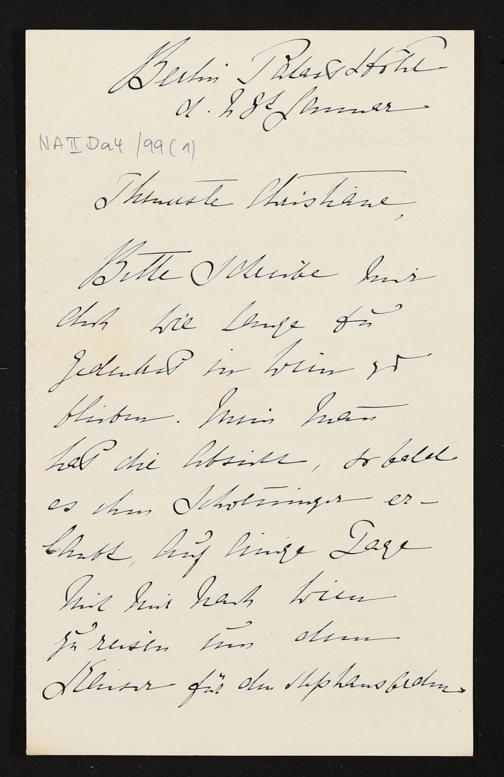 Berlin Palast Hôtel
d. 28t Januar
NA II Da4 /99 (1)
Theuerste Christiane,
Bitte schreibe mir
doch wie lange du
gedenkst in Wien zu
bleiben. Mein Mann
hat die Absicht, so bald
es ihm Schweninger er-
laubt, auf einige Tage
mit mir nach Wien
zu reisen um dem
Kaiser für den Stephans